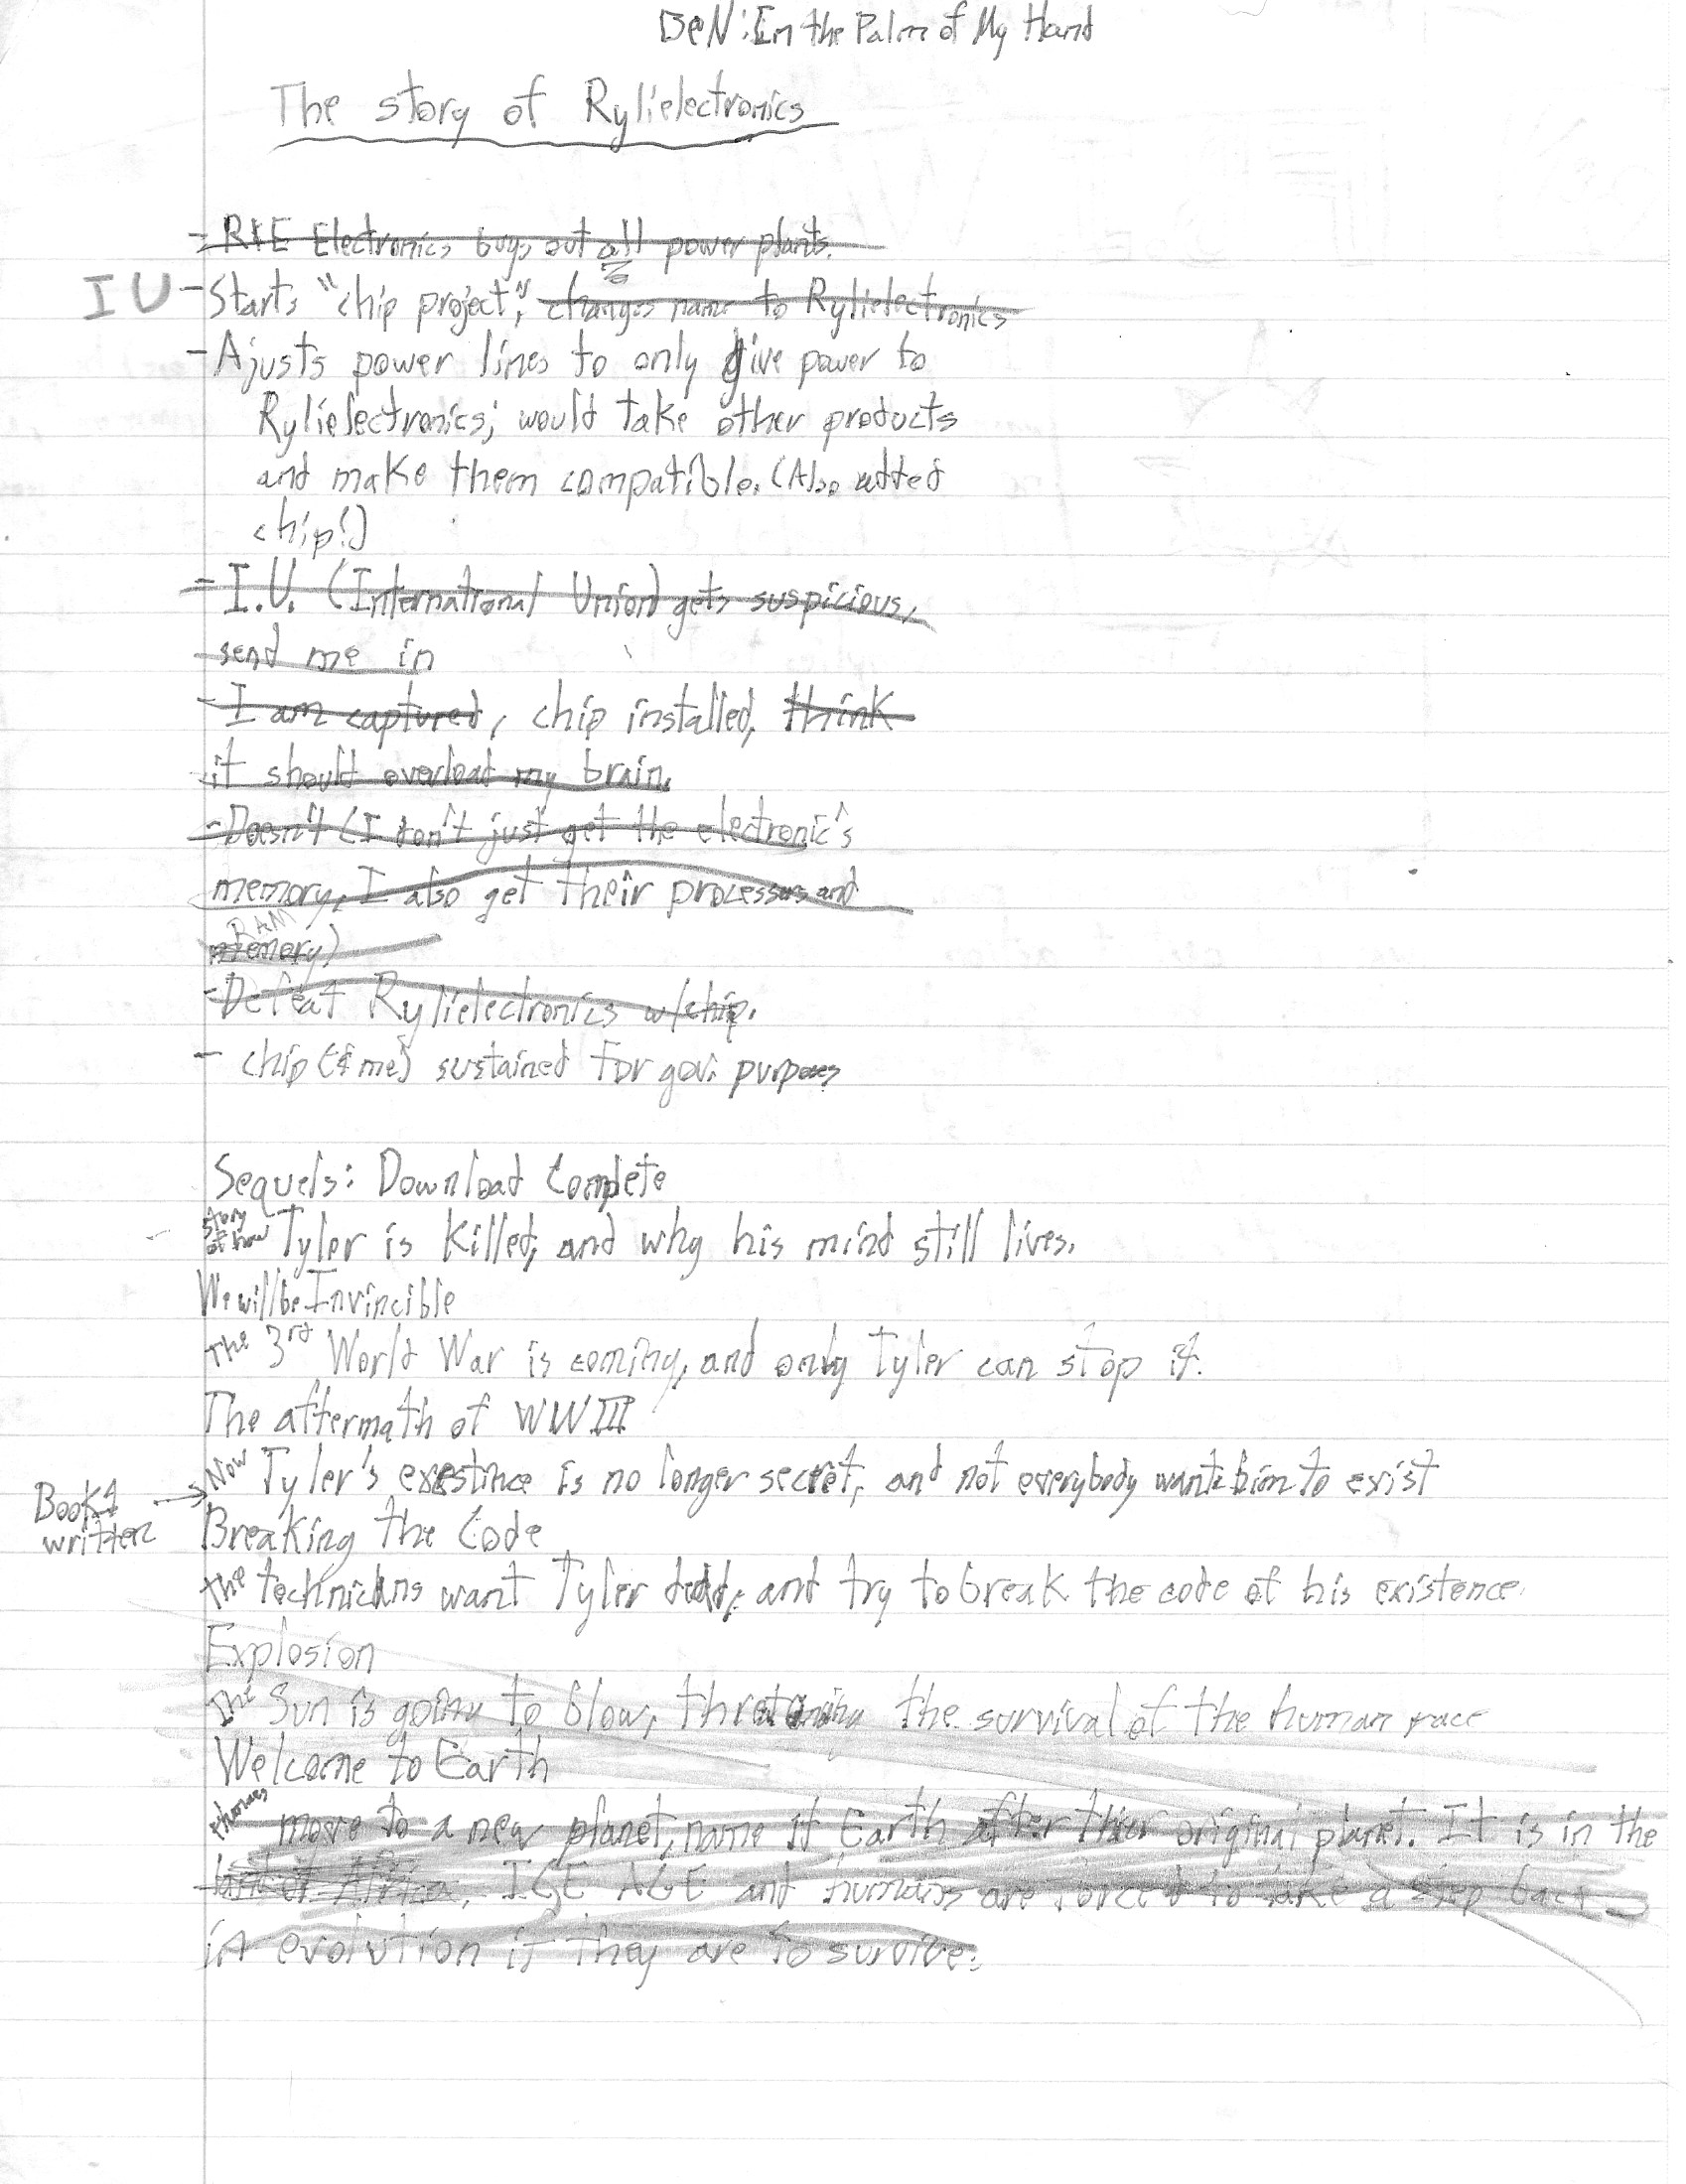 BeN: In the Palm of My Hand
The story of Rylielectronics
- R+E Electronics buys out all power plants.
IU - Starts "chip project", changes name to Rylielectronics
- Ajusts power lines to only give power to
Rylielectronics; would take other products
and make them compatible. (Also added
chip!)
- I.U. (International Union) gets suspicious,
send me in
- I am captured, chip installed, think
it should overload my brain.
- Doesn't (I don't just get the electronic's
memory, I also get their processors and
RAM
memory)
- Defeat Rylielectronics w/chip.
- chip (& me) sustained for gov. purposes
Sequels: Download Complete
story of how Tyler is killed, and why his mind still lives.
We will be Invincible
The 3rd World War is coming, and only Tyler can stop it.
The aftermath of WWIII
Now Tyler's existince is no longer secret, and not everybody wants him to exist
Book 1 written →
Breaking the Code
The technicians want Tyler dead, and try to break the code of his existence.
Explosion
The Sun is going to blow, threatening the survival of the human race
Welcome to Earth
Humans move to a new planet, name it Earth after thier original planet. It is in the
ICE AGE and humans are forced to take a step back
in evolution if they are to survive.